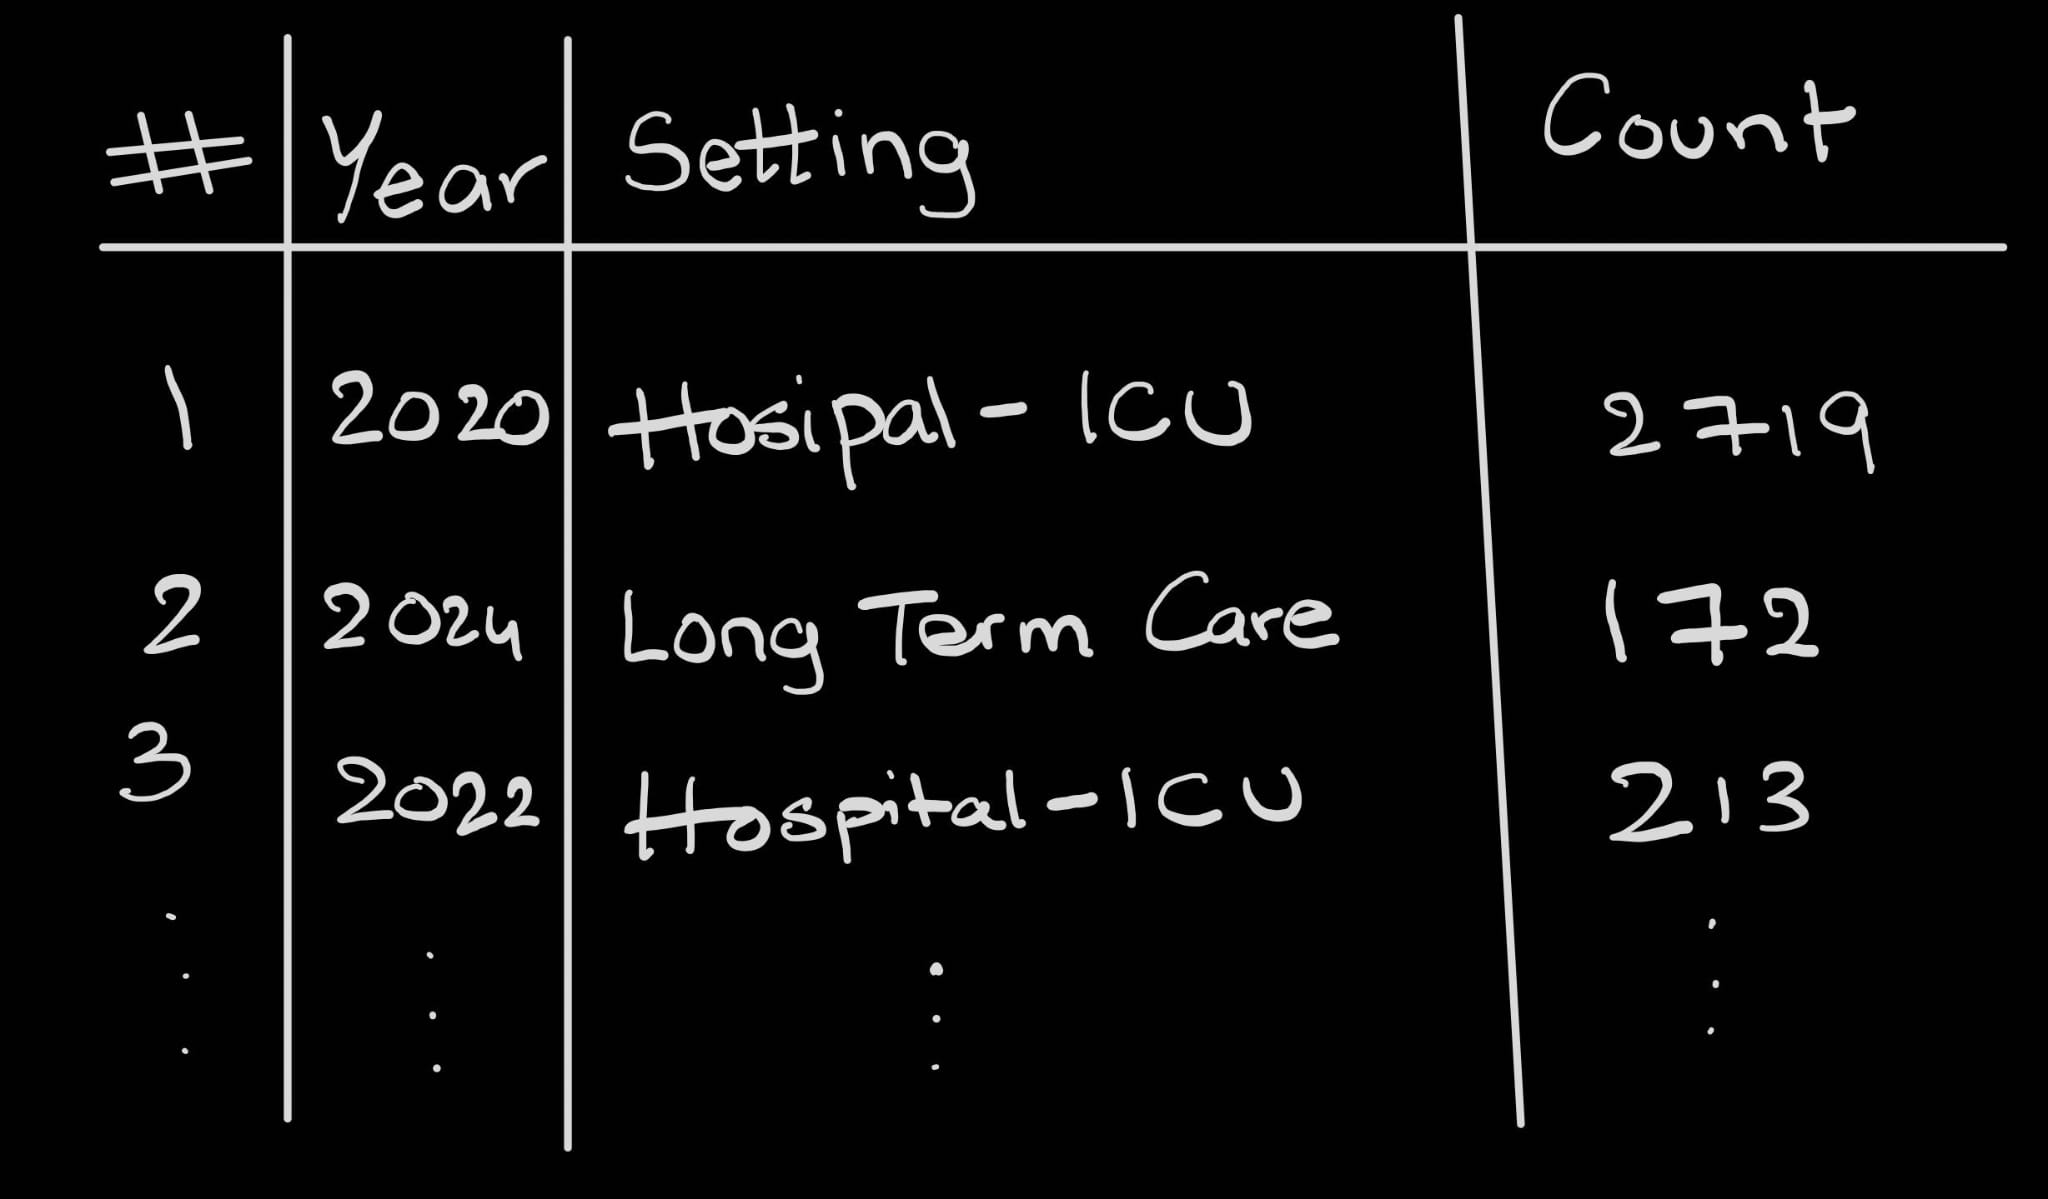 # Year Setting Count
1 2020 Hosipal - ICU 2719
2 2024 Long Term Care 172
3 2022 Hospital - ICU 213